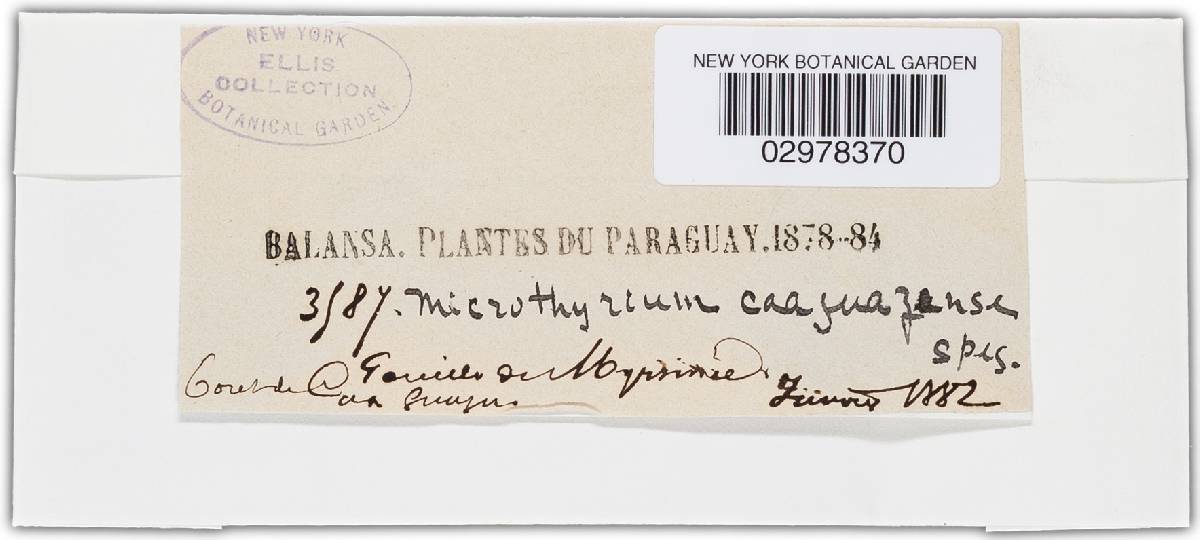 NEW YORK
ELLIS
COLLECTION
BOTANICAL GARDEN.
NEW YORK BOTANICAL GARDEN
02978370
BALANSA. PLANTES DU PARAGUAY. 1878-84
3587. Microthyrium caaguazense
speg.
de Caa Guazu.
Feuilles de Myrsinée.
Février 1882